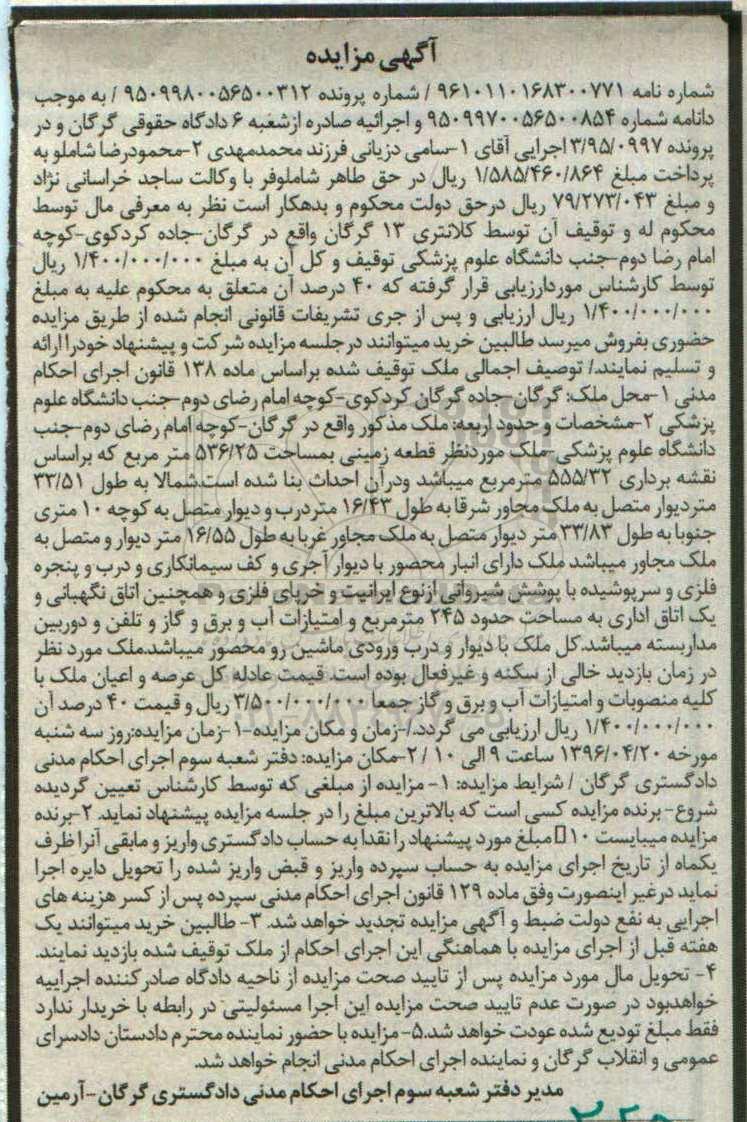 آگهی مزایده
شماره نامه ۹۶۱۰۱۱۰۱۶۸۳۰۰۷۷۱ / شماره پرونده ۹۵۰۹۹۸۰۰۵۶۵۰۰۳۱۲ / به موجب
دانامه شماره ۹۵۰۹۹۷۰۰۵۶۵۰۰۸۵۴ و اجرائیه صادره ازشعبه ۶ دادگاه حقوقی گرگان و در
پرونده ۳/۹۵/۰۹۹۷ اجرایی آقای ۱-سامی دزیانی فرزند محمدمهدی ۲-محمودرضا شاملو به
پرداخت مبلغ ۱/۵۸۵/۴۶۰/۸۶۴ ریال در حق طاهر شاملوفر با وکالت ساجد خراسانی نژاد
و مبلغ ۷۹/۲۷۳/۰۴۳ ریال درحق دولت محکوم و بدهکار است نظر به معرفی مال توسط
محکوم له و توقیف آن توسط کلانتری ۱۳ گرگان واقع در گرگان-جاده کردکوی-کوچه
امام رضا دوم-جنب دانشگاه علوم پزشکی توقیف و کل آن به مبلغ ۱/۴۰۰/۰۰۰/۰۰۰ ریال
توسط کارشناس موردارزیابی قرار گرفته که ۴۰ درصد آن متعلق به محکوم علیه به مبلغ
۱/۴۰۰/۰۰۰/۰۰۰ ریال ارزیابی و پس از جری تشریفات قانونی انجام شده از طریق مزایده
حضوری بفروش میرسد طالبین خرید میتوانند درجلسه مزایده شرکت و پیشنهاد خودرا ارائه
و تسلیم نمایند./ توصیف اجمالی ملک توقیف شده براساس ماده ۱۳۸ قانون اجرای احکام
مدنی ۱-محل ملک: گرگان-جاده گرگان کردکوی-کوچه امام رضای دوم-جنب دانشگاه علوم
پزشکی ۲-مشخصات و حدود اربعه: ملک مذکور واقع در گرگان-کوچه امام رضای دوم-جنب
دانشگاه علوم پزشکی-ملک موردنظر قطعه زمینی بمساحت ۵۳۶/۲۵ متر مربع که براساس
نقشه برداری ۵۵۵/۳۲ مترمربع میباشد ودرآن احداث بنا شده است.شمالا به طول ۳۳/۵۱
متردیوار متصل به ملک مجاور شرقا به طول ۱۶/۴۳ متردرب و دیوار متصل به کوچه ۱۰ متری
جنوبا به طول ۳۳/۸۳ متر دیوار متصل به ملک مجاور غربا به طول ۱۶/۵۵ متر دیوار و متصل به
ملک مجاور میباشد ملک دارای انبار محصور با دیوار آجری و کف سیمانکاری و درب و پنجره
فلزی و سرپوشیده با پوشش شیروانی ازنوع ایرانیت و خرپای فلزی و همچنین اتاق نگهبانی و
یک اتاق اداری به مساحت حدود ۲۴۵ مترمربع و امتیازات آب و برق و گاز و تلفن و دوربین
مداربسته میباشد.کل ملک با دیوار و درب ورودی ماشین رو محصور میباشد.ملک مورد نظر
در زمان بازدید خالی از سکنه و غیرفعال بوده است. قیمت عادله کل عرصه و اعیان ملک با
کلیه منصوبات و امتیازات آب و برق و گاز جمعا ۳/۵۰۰/۰۰۰/۰۰۰ ریال و قیمت ۴۰ درصد آن
۱/۴۰۰/۰۰۰/۰۰۰ ریال ارزیابی می گردد./-زمان و مکان مزایده-۱-زمان مزایده:روز سه شنبه
مورخه ۱۳۹۶/۰۴/۲۰ ساعت ۹ الی ۱۰ / ۲-مکان مزایده: دفتر شعبه سوم اجرای احکام مدنی
دادگستری گرگان / شرایط مزایده: ۱- مزایده از مبلغی که توسط کارشناس تعیین گردیده
شروع- برنده مزایده کسی است که بالاترین مبلغ را در جلسه مزایده پیشنهاد نماید. ۲-برنده
مزایده میبایست ۱۰ مبلغ مورد پیشنهاد را نقدا به حساب دادگستری واریز و مابقی آنرا ظرف
یکماه از تاریخ اجرای مزایده به حساب سپرده واریز و قبض واریز شده را تحویل دایره اجرا
نماید درغیر اینصورت وفق ماده ۱۲۹ قانون اجرای احکام مدنی سپرده پس از کسر هزینه های
اجرایی به نفع دولت ضبط و آگهی مزایده تجدید خواهد شد. ۳- طالبین خرید میتوانند یک
هفته قبل از اجرای مزایده با هماهنگی این اجرای احکام از ملک توقیف شده بازدید نمایند.
۴- تحویل مال مورد مزایده پس از تایید صحت مزایده از ناحیه دادگاه صادرکننده اجراییه
خواهدبود در صورت عدم تایید صحت مزایده این اجرا مسئولیتی در رابطه با خریدار ندارد
فقط مبلغ تودیع شده عودت خواهد شد.۵- مزایده با حضور نماینده محترم دادستان دادسرای
عمومی و انقلاب گرگان و نماینده اجرای احکام مدنی انجام خواهد شد.
مدیر دفتر شعبه سوم اجرای احکام مدنی دادگستری گرگان-آرمین